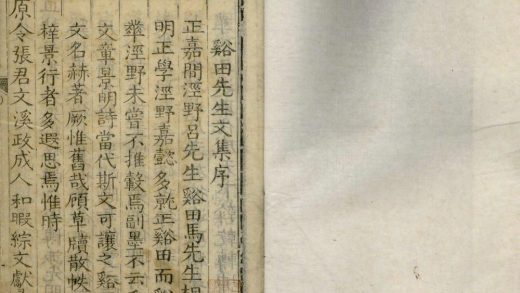 谿田先生文集序
正嘉間涇野呂先生谿田馬先生相
明正學涇野嘉懿多就正谿田而谿
舉涇野未嘗不推轂焉副墨不云乎
文章景明詩當代斯文可讓之谿
文名赫著厥惟舊哉顧草牘散帙
梓景行者多遐思焉惟時
原令張君文溪政成人和暇綜文獻